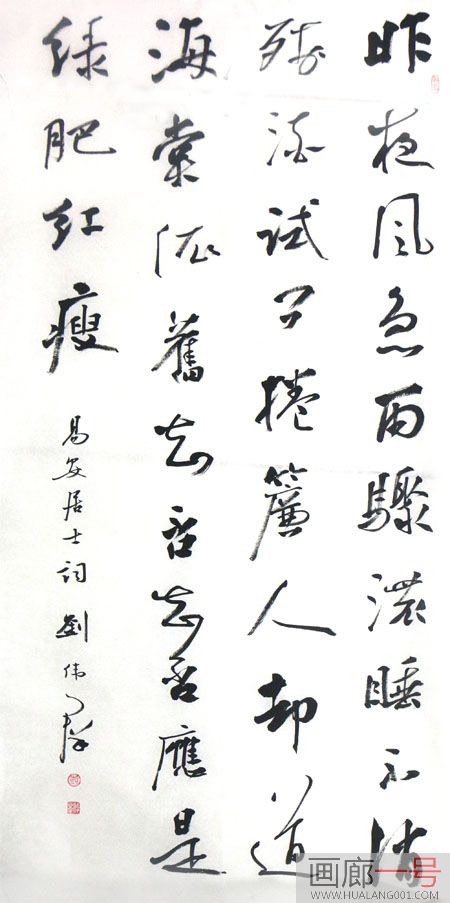 昨夜风急雨驟濃睡不消
殘酒試问捲簾人却道
海棠依舊知否知否應是
绿肥红瘦
易安居士詞 劉偉
画廊一号
WWW.HUALANG001.COM